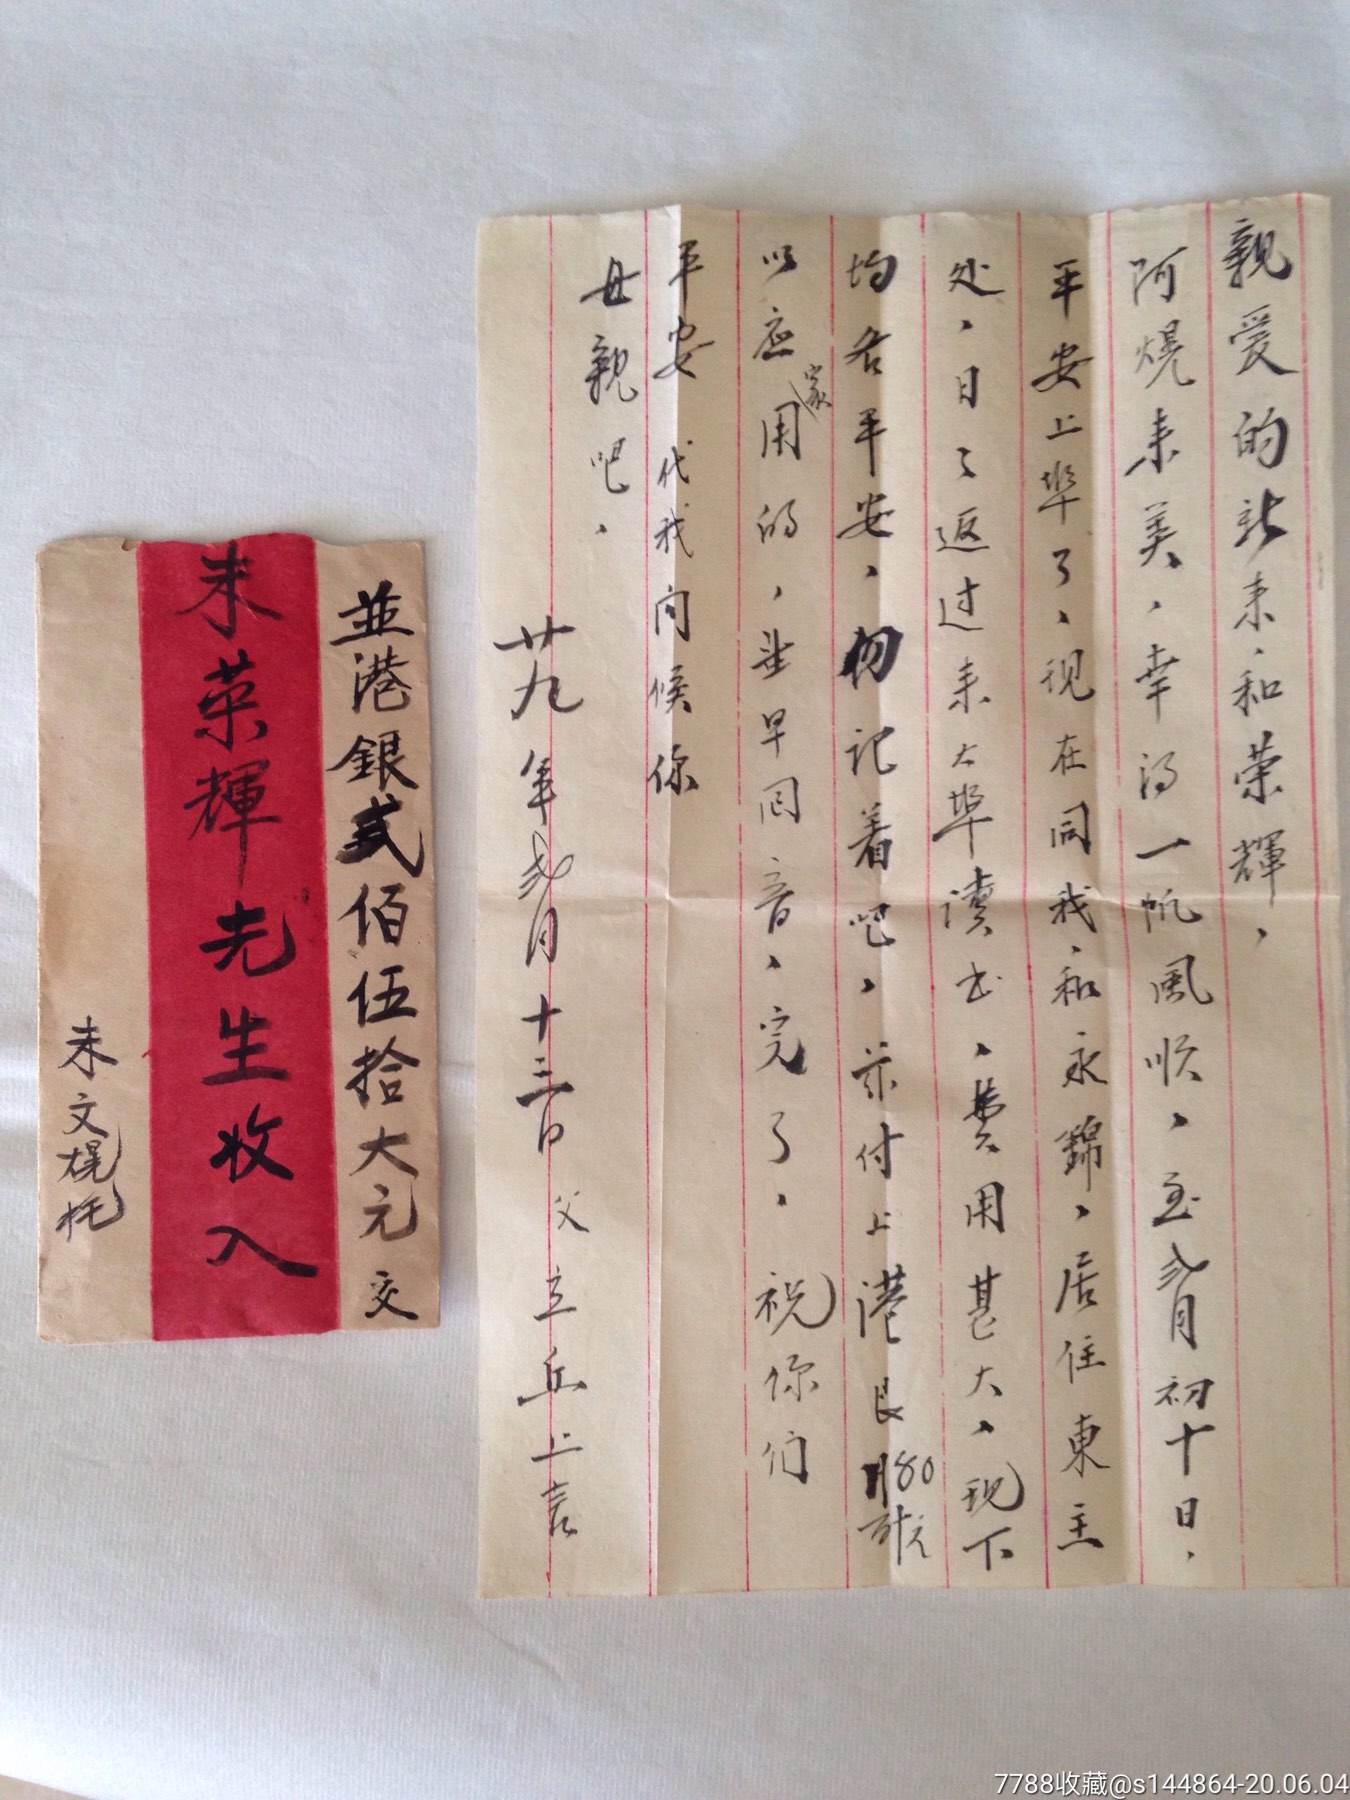 親爱的新来，和荣輝，
阿焜来美，幸得一帆風順，至弍月初十日，
平安上埠了，现在同我，和永錦，居住東主
处，日々返过来大埠读书，费用甚大，现下
均各平安，勿记着吧，茲付上港艮80元
以应家用的，望早回音，完了，祝你们
平安 代我问候你
母親吧，
廿九年弍月十三日 父立丘上言
並港銀弍佰伍拾大元 交
朱荣輝先生收入
朱文焜托
7788收藏@s144864-20.06.04